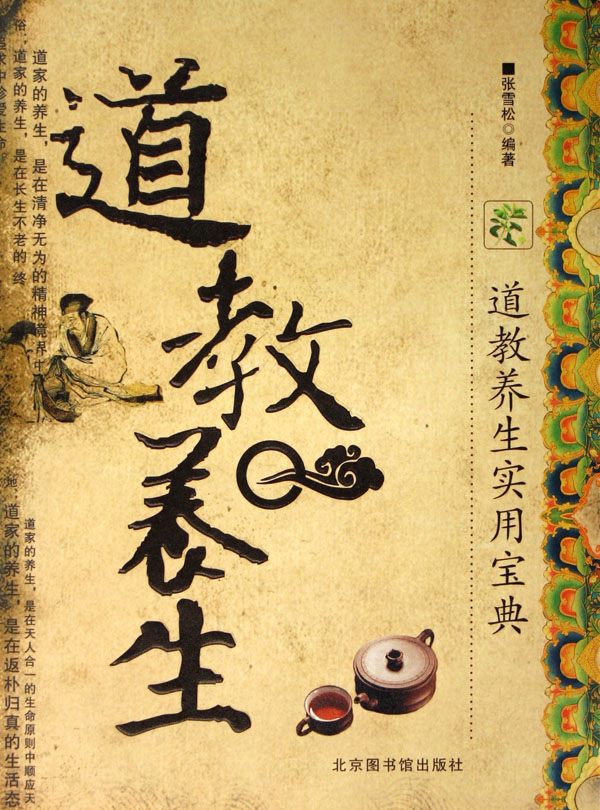 道教养生
■张雪松◎编著
道教养生实用宝典
道家的养生，是在清净无为的精神境界中
俗；道家的养生，是在长生不老的终
追求中珍爱生命
道家的养生，是在天人合一的生命原则中顺应天
地；道家的养生，是在返朴归真的生活态
北京图书馆出版社